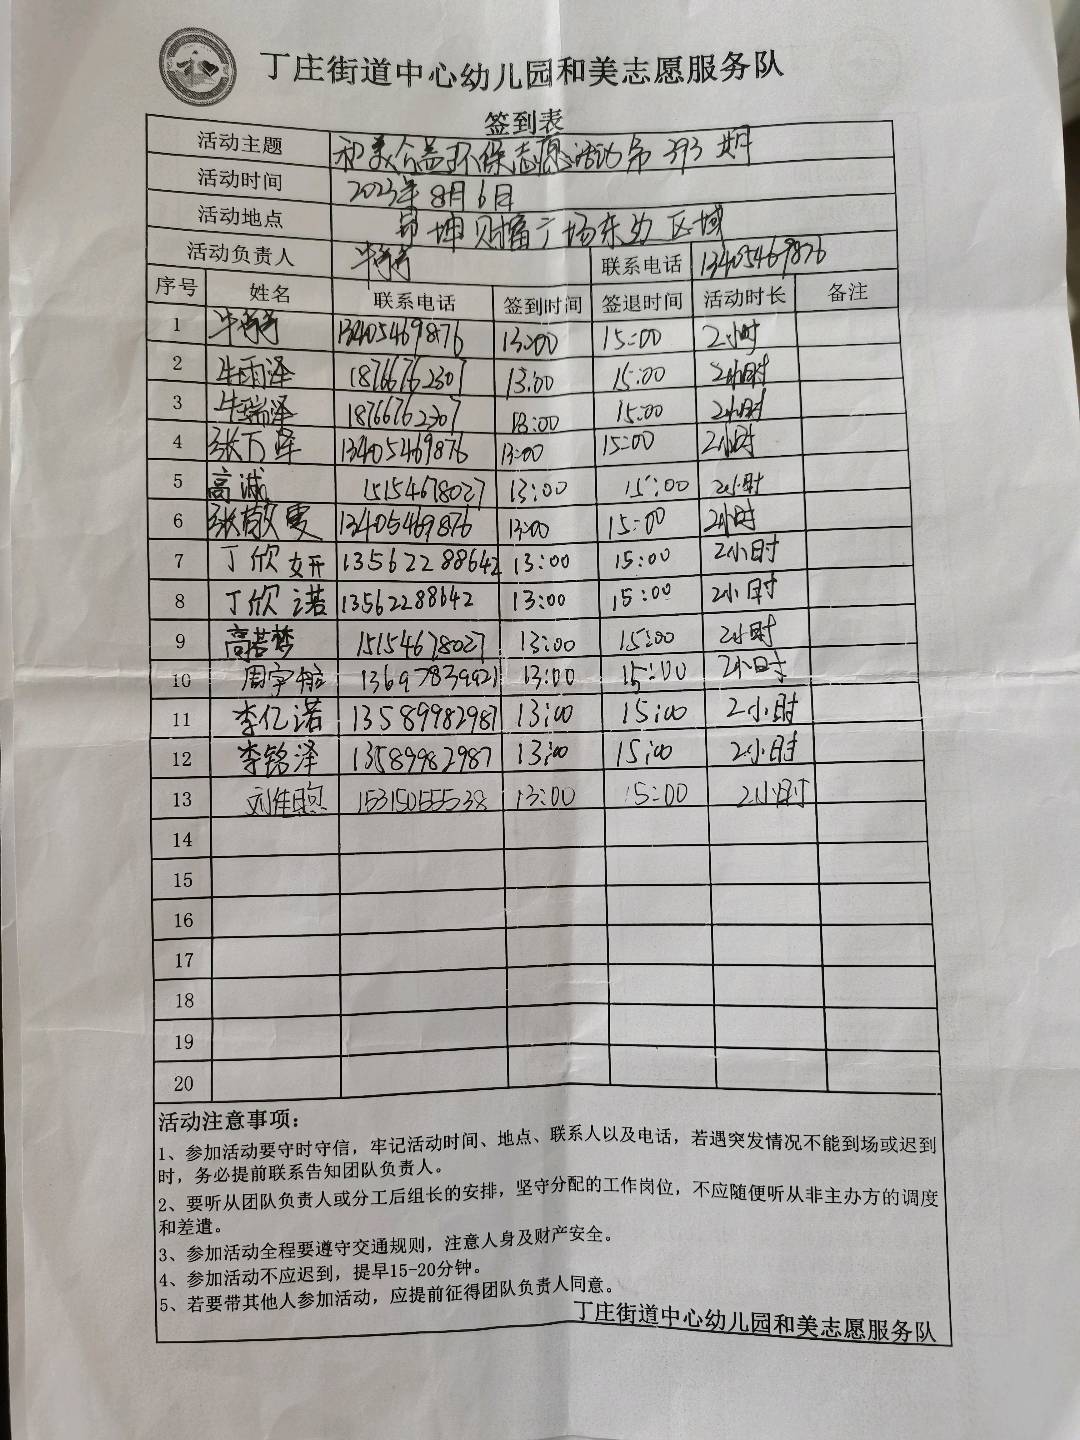 丁庄街道中心幼儿园和美志愿服务队
签到表
活动主题 和美公益环保志愿活动第393期
活动时间 2023年8月6日
活动地点 坤财富广场东边区域
活动负责人 联系电话 13405469876
序号 姓名 联系电话 签到时间 签退时间 活动时长 备注
1 13405469876 13:00 15:00 2小时
2 牛雨泽 18766762307 13:00 15:00 2小时
3 牛瑞泽 18766762307 13:00 15:00 2小时
4 张万泽 13405469876 13:00 15:00 2小时
5 高诚 15154678027 13:00 15:00 2小时
6 张敬雯 13405469876 13:00 15:00 2小时
7 丁欣妍 13562288642 13:00 15:00 2小时
8 丁欣诺 13562288642 13:00 15:00 2小时
9 高若梦 15154678027 13:00 15:00 2小时
10 周宇航 13:00 15:00 2小时
11 李亿诺 13589982987 13:00 15:00 2小时
12 李铭泽 13589982987 13:00 15:00 2小时
13 刘佳煦 13:00 15:00 2小时
14
15
16
17
18
19
20
活动注意事项：
1、参加活动要守时守信，牢记活动时间、地点、联系人以及电话，若遇突发情况不能到场或迟到
时，务必提前联系告知团队负责人。
2、要听从团队负责人或分工后组长的安排，坚守分配的工作岗位，不应随便听从非主办方的调度
和差遣。
3、参加活动全程要遵守交通规则，注意人身及财产安全。
4、参加活动不应迟到，提早15-20分钟。
5、若要带其他人参加活动，应提前征得团队负责人同意。
丁庄街道中心幼儿园和美志愿服务队